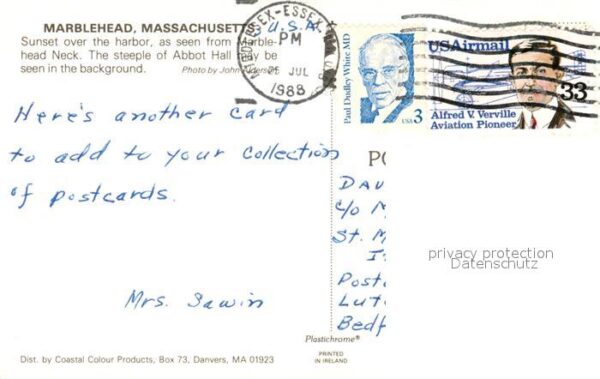 MARBLEHEAD, MASSACHUSETT
Sunset over the harbor, as seen from Marble-
head Neck. The steeple of Abbot Hall may be
seen in the background. Photo by John
U.S.A.
ESSEX-ESSEX
PM
25 JUL
1988
Paul Dudley White MD
USA 3
USAirmail
33
Alfred V. Verville
Aviation Pioneer
Here's another card
to add to your collection
of postcards.
Mrs. Sawin
PO
DAV
c/o M
St. M
I
Posto
Lut
Bedf
privacy protection
Datenschutz
Plastichrome®
PRINTED
IN IRELAND
Dist. by Coastal Colour Products, Box 73, Danvers, MA 01923